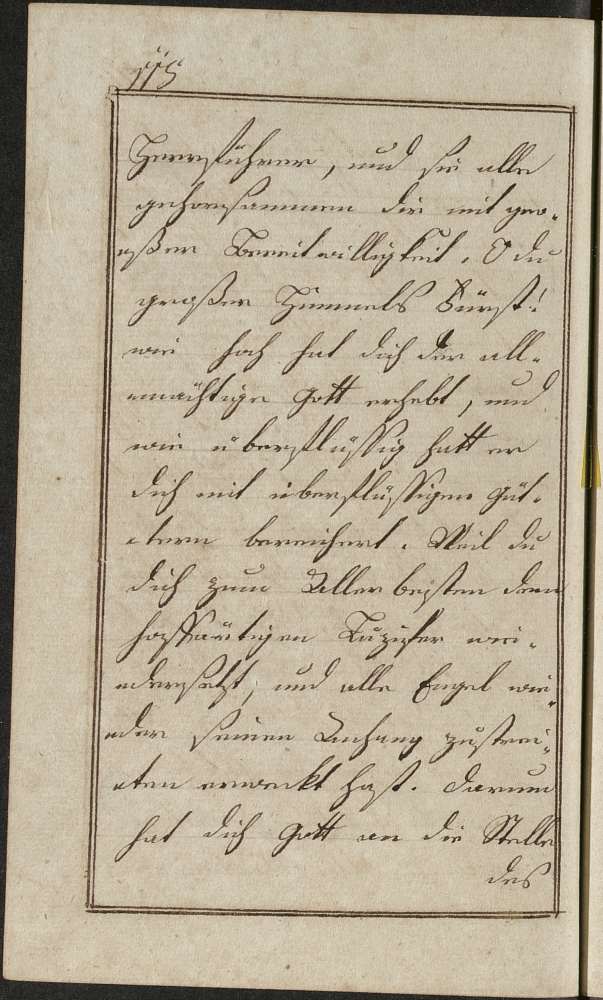 115
Heerführer, und sie alle
gehorsammen dir mit gro-
oßer Bereitwilligkeit. O du
großer Himmels Fürst!
wie hoch hat dich der all-
mächtige Gott erhebt, und
wie überflüssig hatt er
dich mit überflüssigen Güt-
tern bereichert. Weil du
dich zum Aller besten dem
hoffärtigen Luzifer wi-
dersetzt, und alle Engel wie-
der seinen Anhang zustrei-
ten erweckt hast. Darum
hat dich Gott an die Stelle
des